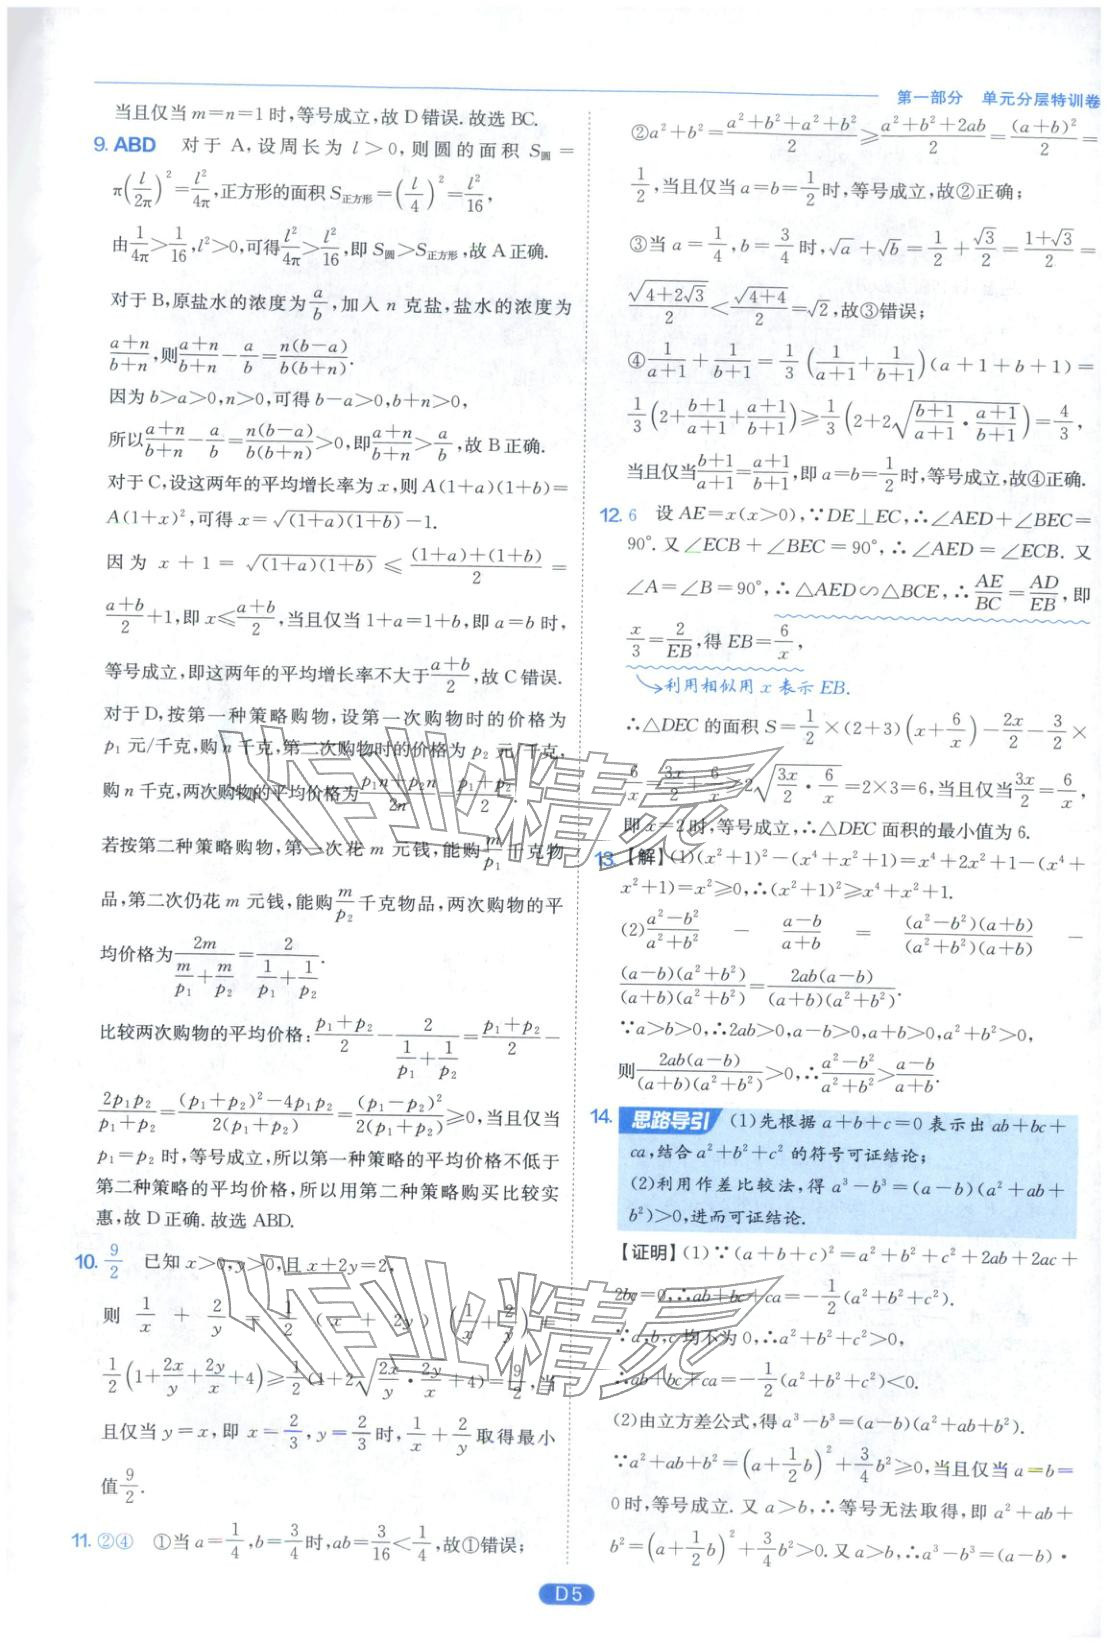 第一部分　单元分层特训卷
当且仅当 m=n=1 时,等号成立,故 D 错误.故选 BC.
9. ABD　对于 A,设周长为 l>0,则圆的面积 S圆=
π(l/2π)²=l²/4π,正方形的面积 S正方形=(l/4)²=l²/16,
由1/4π>1/16,l²>0,可得l²/4π>l²/16,即 S圆>S正方形,故 A 正确.
对于 B,原盐水的浓度为a/b,加入 n 克盐,盐水的浓度为
(a+n)/(b+n),则(a+n)/(b+n)-a/b=n(b-a)/b(b+n).
因为 b>a>0,n>0,可得 b-a>0,b+n>0,
所以(a+n)/(b+n)-a/b=n(b-a)/b(b+n)>0,即(a+n)/(b+n)>a/b,故 B 正确.
对于 C,设这两年的平均增长率为 x,则 A(1+a)(1+b)=
A(1+x)²,可得 x=√((1+a)(1+b))-1.
因为 x+1=√((1+a)(1+b))≤((1+a)+(1+b))/2=
(a+b)/2+1,即 x≤(a+b)/2,当且仅当 1+a=1+b,即 a=b 时,
等号成立,即这两年的平均增长率不大于(a+b)/2,故 C 错误.
对于 D,按第一种策略购物,设第一次购物时的价格为
p₁ 元/千克,购 n 千克,第二次购物时的价格为 p₂ 元/千克,
购 n 千克,两次购物的平均价格为(p₁n+p₂n)/2n=(p₁+p₂)/2.
若按第二种策略购物,第一次花 m 元钱,能购m/p₁千克物
品,第二次仍花 m 元钱,能购m/p₂千克物品,两次购物的平
均价格为2m/(m/p₁+m/p₂)=2/(1/p₁+1/p₂).
比较两次购物的平均价格:(p₁+p₂)/2-2/(1/p₁+1/p₂)=(p₁+p₂)/2-
2p₁p₂/(p₁+p₂)=((p₁+p₂)²-4p₁p₂)/2(p₁+p₂)=(p₁-p₂)²/2(p₁+p₂)≥0,当且仅当
p₁=p₂ 时,等号成立,所以第一种策略的平均价格不低于
第二种策略的平均价格,所以用第二种策略购买比较实
惠,故 D 正确.故选 ABD.
10. 9/2　已知 x>0,y>0,且 x+2y=2,
则 1/x+2/y=1/2(x+2y)(1/x+2/y)=
1/2(1+2x/y+2y/x+4)≥1/2(1+2√(2x/y·2y/x)+4)=9/2,当
且仅当 y=x,即 x=2/3,y=2/3时,1/x+2/y取得最小
值9/2.
11. ②④　①当 a=1/4,b=3/4时,ab=3/16<1/4,故①错误;
②a²+b²=(a²+b²+a²+b²)/2≥(a²+b²+2ab)/2=(a+b)²/2=
1/2,当且仅当 a=b=1/2时,等号成立,故②正确;
③当 a=1/4,b=3/4时,√a+√b=1/2+√3/2=(1+√3)/2=
√(4+2√3)/2<√(4+4)/2=√2,故③错误;
④1/(a+1)+1/(b+1)=1/3(1/(a+1)+1/(b+1))(a+1+b+1)=
1/3(2+(b+1)/(a+1)+(a+1)/(b+1))≥1/3(2+2√((b+1)/(a+1)·(a+1)/(b+1)))=4/3,
当且仅当(b+1)/(a+1)=(a+1)/(b+1),即 a=b=1/2时,等号成立,故④正确.
12. 6　设 AE=x(x>0),∵DE⊥EC,∴∠AED+∠BEC=
90°.又∠ECB+∠BEC=90°,∴∠AED=∠ECB.又
∠A=∠B=90°,∴△AED∽△BCE,∴AE/BC=AD/EB,即
x/3=2/EB,得 EB=6/x,
利用相似用 x 表示 EB.
∴△DEC 的面积 S=1/2×(2+3)(x+6/x)-2x/2-3/2×
6/x=3x/2+6/x≥2√(3x/2·6/x)=2×3=6,当且仅当3x/2=6/x,
即 x=2时,等号成立,∴△DEC 面积的最小值为 6.
13.【解】(1)(x²+1)²-(x⁴+x²+1)=x⁴+2x²+1-(x⁴+
x²+1)=x²≥0,∴(x²+1)²≥x⁴+x²+1.
(2)(a²-b²)/(a²+b²)-(a-b)/(a+b)=(a²-b²)(a+b)/(a²+b²)(a+b)-
(a-b)(a²+b²)/(a+b)(a²+b²)=2ab(a-b)/(a+b)(a²+b²).
∵a>b>0,∴2ab>0,a-b>0,a+b>0,a²+b²>0,
则2ab(a-b)/(a+b)(a²+b²)>0,∴(a²-b²)/(a²+b²)>(a-b)/(a+b).
14. 思路导引　(1)先根据 a+b+c=0 表示出 ab+bc+
ca,结合 a²+b²+c² 的符号可证结论;
(2)利用作差比较法,得 a³-b³=(a-b)(a²+ab+
b²)>0,进而可证结论.
【证明】(1)∵(a+b+c)²=a²+b²+c²+2ab+2ac+
2bc=0,∴ab+bc+ca=-1/2(a²+b²+c²).
∵a,b,c 均不为 0,∴a²+b²+c²>0,
∴ab+bc+ca=-1/2(a²+b²+c²)<0.
(2)由立方差公式,得 a³-b³=(a-b)(a²+ab+b²).
∵a²+ab+b²=(a+1/2b)²+3/4b²≥0,当且仅当 a=b=
0时,等号成立.又 a>b,∴等号无法取得,即 a²+ab+
b²=(a+1/2b)²+3/4b²>0.又 a>b,∴a³-b³=(a-b)·
D5
作业精灵
作业精灵